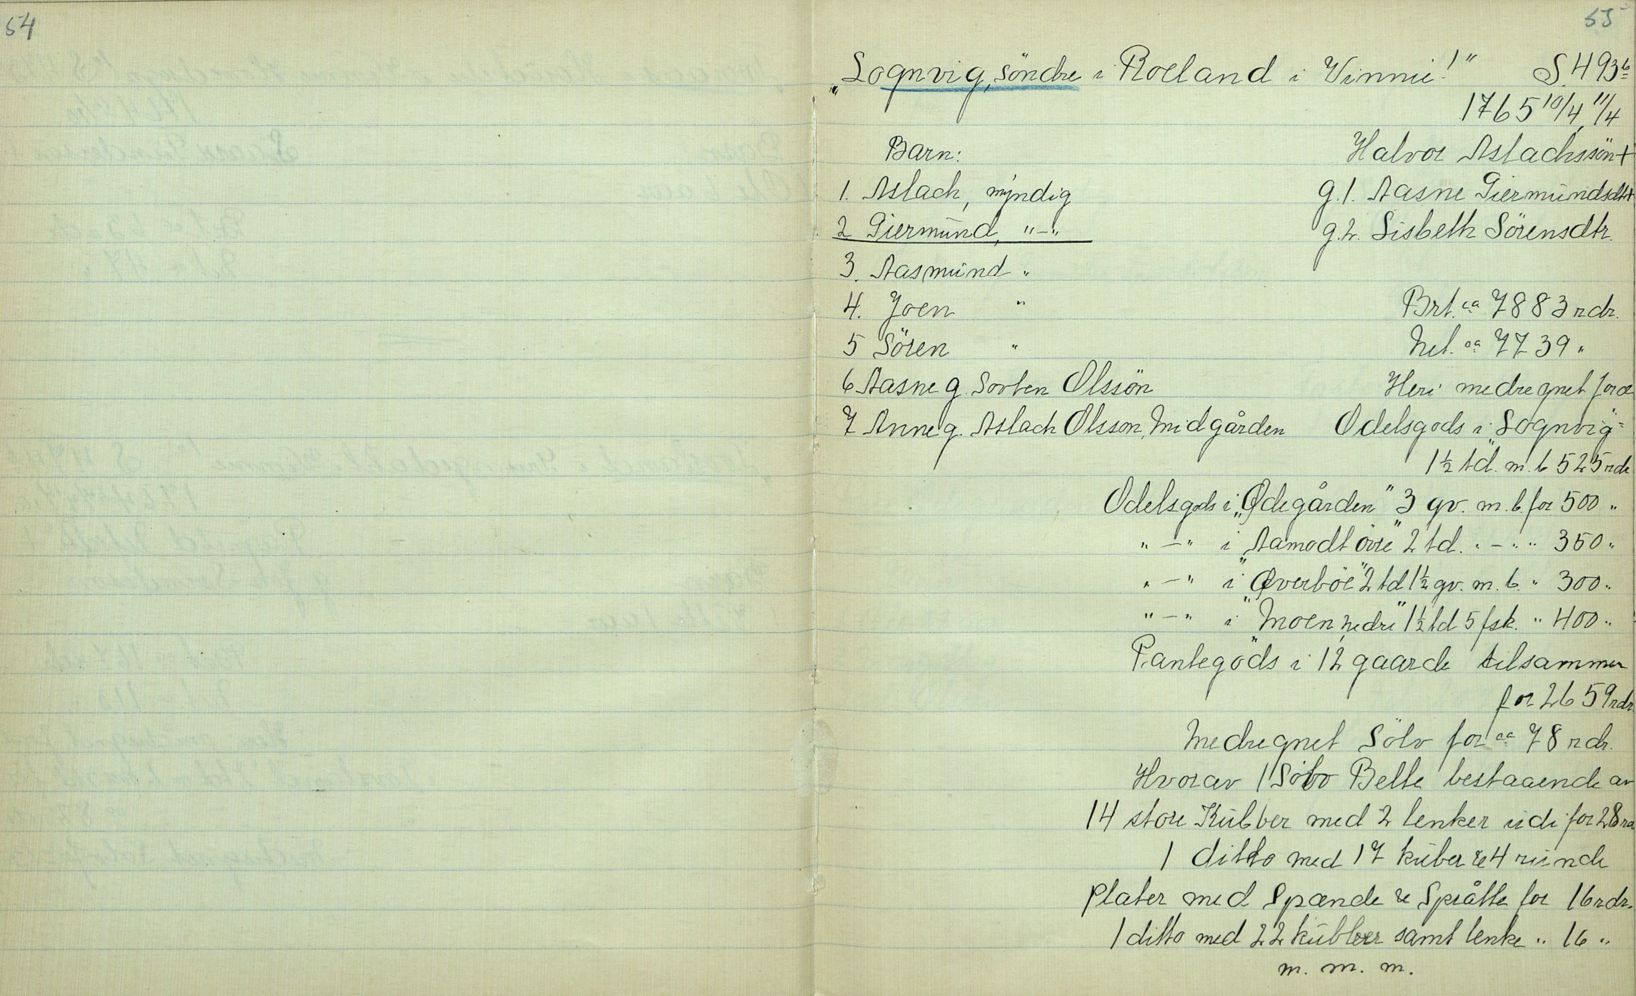 54
55
"Sognvig, söndre i Roeland i Vinnie!" S 493b
1765 10/4, 11/4
Barn: Halvor Aslachssön +
1. Aslach, myndig g.1. Aasne Giermundsdtr +
2 Giermund, "-" g.2. Lisbeth Sörensdtr.
3. Aasmund "
4. Joen " Brt. ca 7883 rdr.
5 Sören " Net. ca 7739 "
6 Aasne g. Torben Olssön Heri medregnet for
7 Anne g. Aslach Olsson, Midgården Odelsgods i "Sognvig"
1½ td. m. b 525 rdr
Odelsgods i "Ödegården" 3 gv. m. b. for 500 "
"-" i "Aamodt övre" 2 td. "-" " 350 "
"-" i "Överböe" 2 td 1½ gv. m. b. " 300 "
"-" i "Moen, nedre" 1½ td 5 fsk. " 400 "
Pantegods i 12 gaarde tilsammen
for 2659 rdr
Medregnet Sölv for ca 78 rdr.
Hvorav 1 Sölv Belte bestaaende av
14 store Kubber med 2 lenker udi for 28 rd
1 ditto med 17 kuber & 4 runde
plater med Spænde & Språtte for 16 rdr.
1 ditto med 22 kubber samt lenke " 16 "
m. m. m.